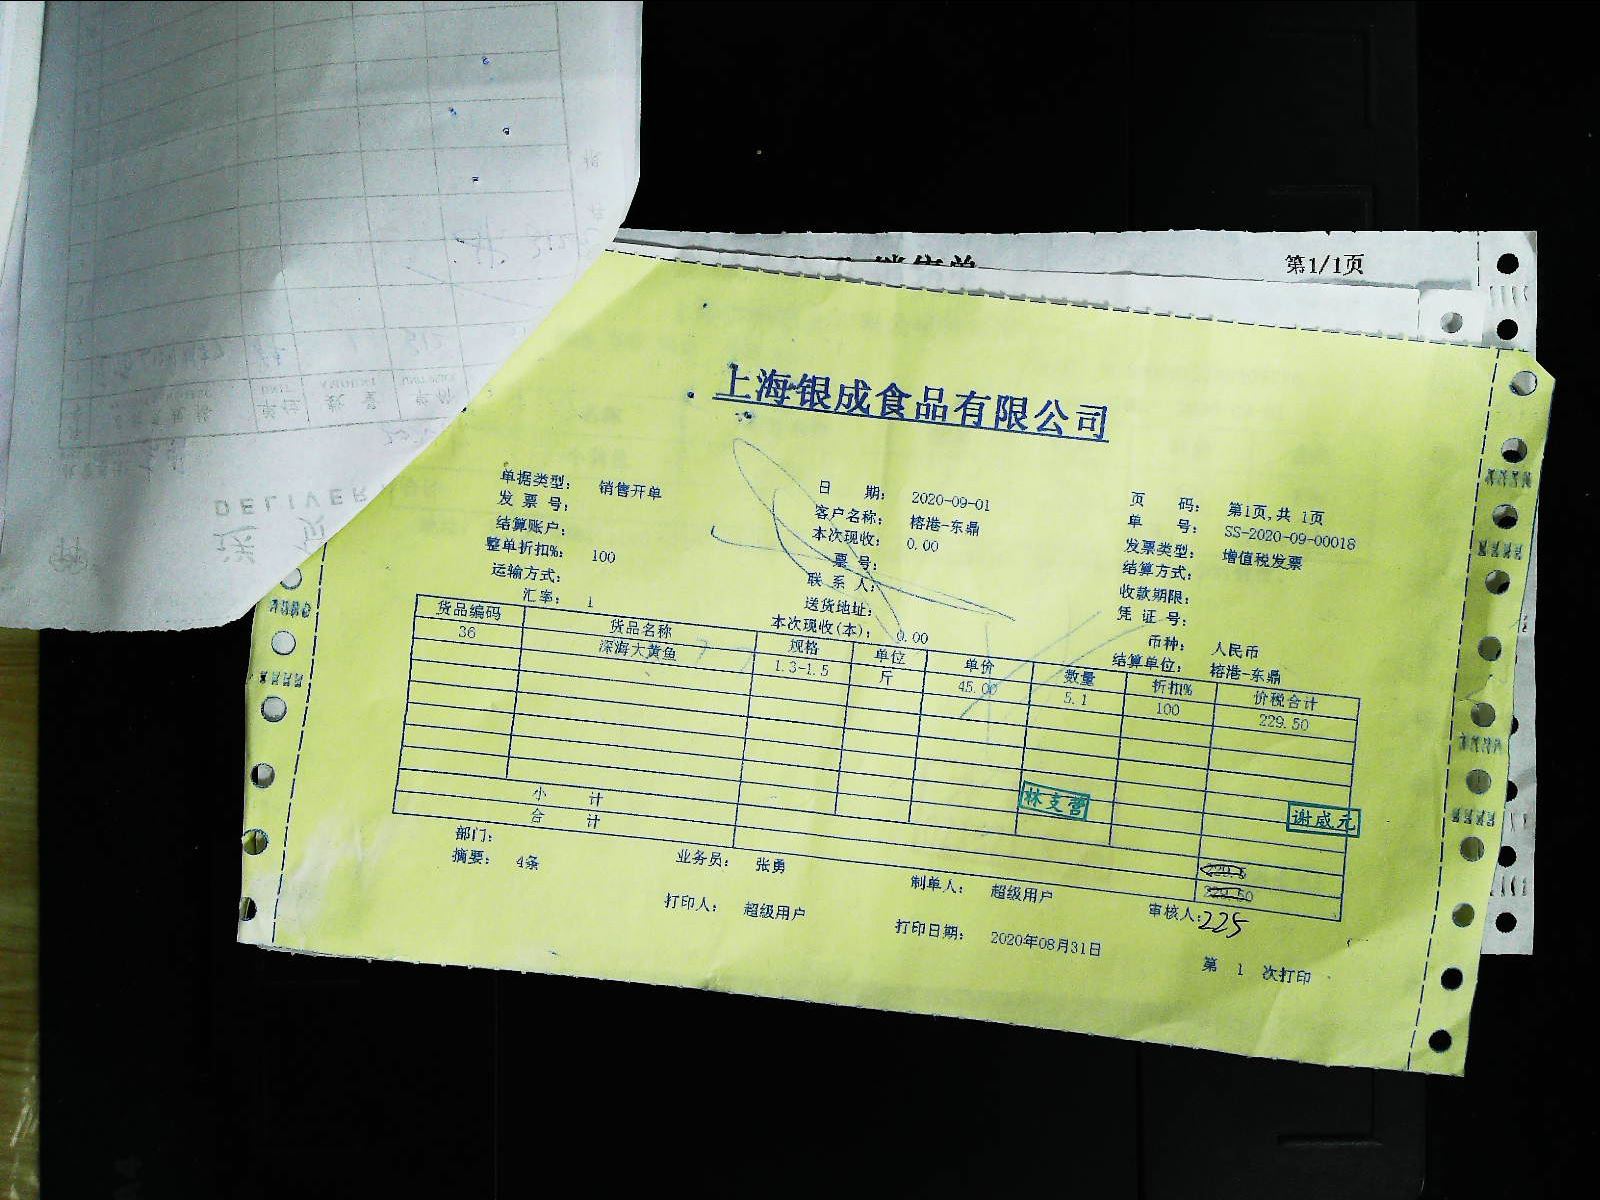 第1/1页
上海银成食品有限公司
单据类型： 销售开单 日 期： 2020-09-01 页 码： 第1页,共 1页
发 票 号： 客户名称： 榕港-东鼎 单 号： SS-2020-09-00018
结算账户： 本次现收： 0.00 发票类型： 增值税发票
整单折扣%： 100 票 号： 结算方式：
运输方式： 联 系 人： 收款期限：
汇率： 1 送货地址： 凭 证 号：
本次现收(本)： 0.00 币种： 人民币
结算单位： 榕港-东鼎
货品编码 货品名称 规格 单位 单价 数量 折扣% 价税合计
36 深海大黄鱼 1.3-1.5 斤 45.00 5.1 100 229.50
林支营 谢威元
小 计 229.5
合 计 229.50
部门： 业务员： 张勇 制单人： 超级用户 审核人： 225
摘要： 4条
打印人： 超级用户 打印日期： 2020年08月31日 第 1 次打印